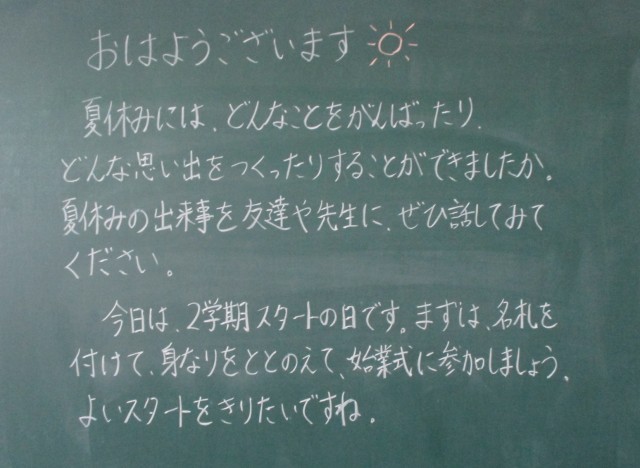 おはようございます
夏休みには、どんなことをがんばったり、
どんな思い出をつくったりすることができましたか。
夏休みの出来事を友達や先生に、ぜひ話してみて
ください。
今日は、2学期スタートの日です。まずは、名札を
付けて、身なりをととのえて、始業式に参加しましょう。
よいスタートをきりたいですね。